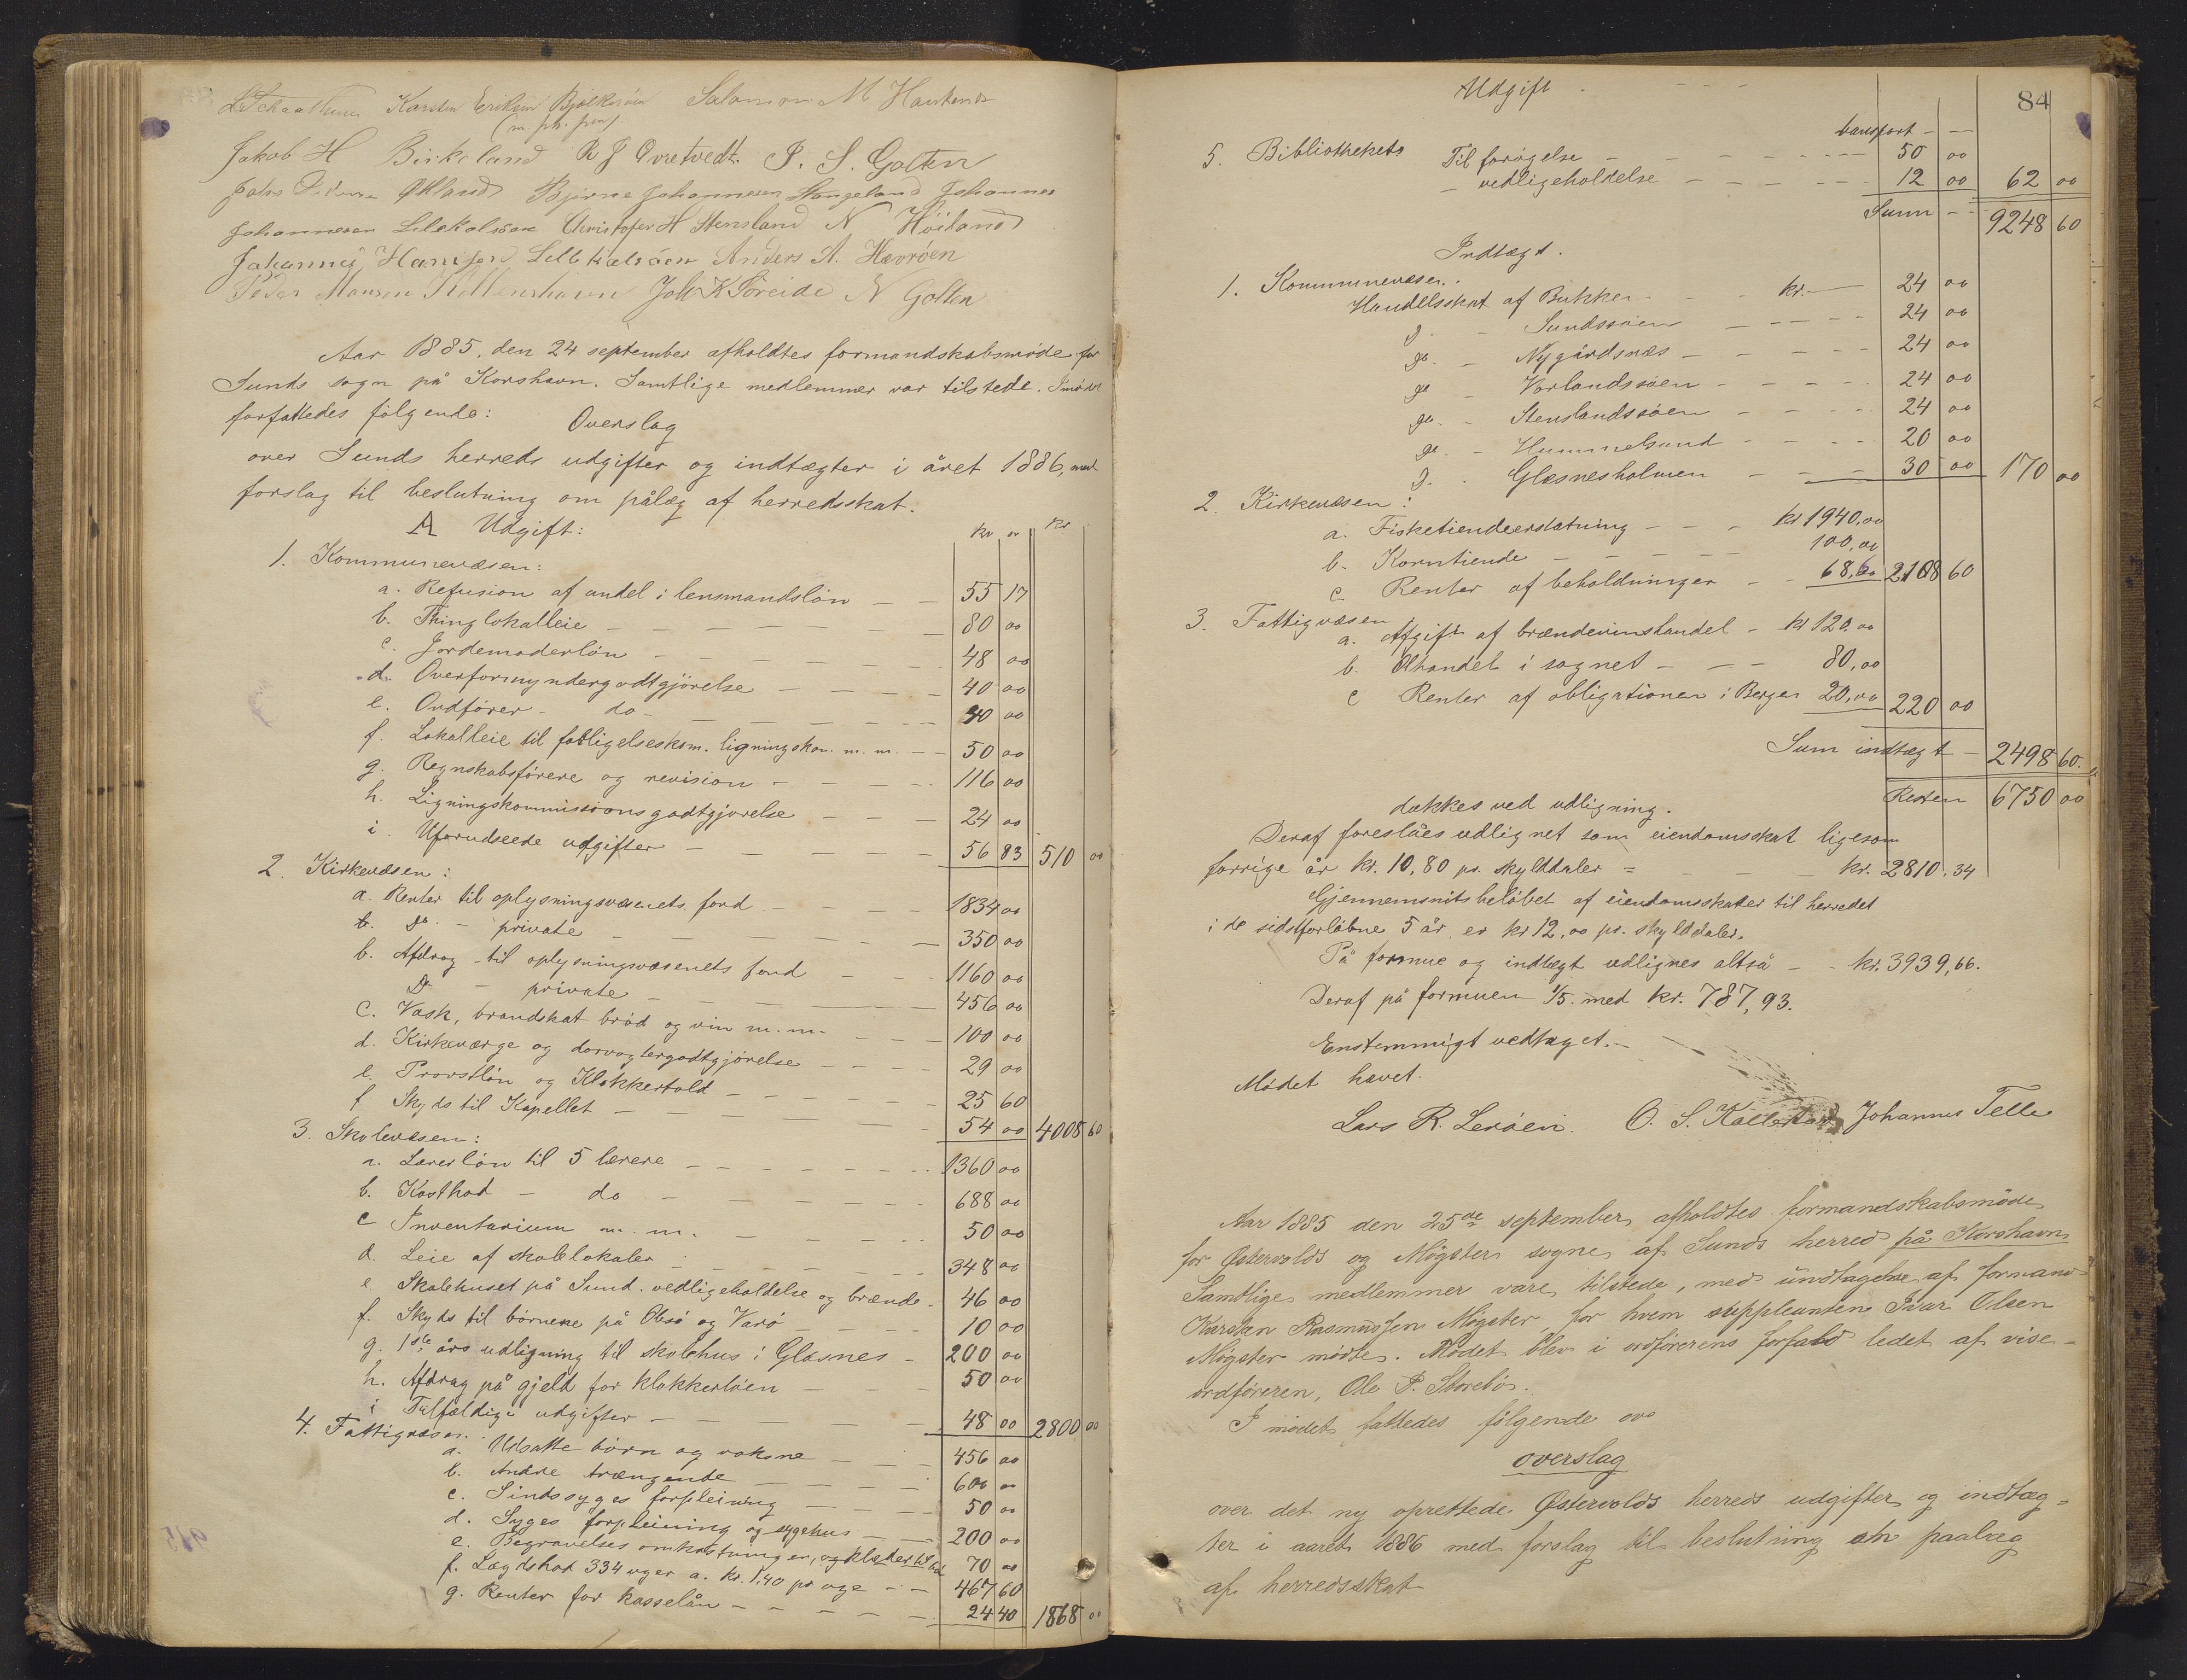 Karsten Eriksen Bjelkeröen Salamon M Haukenæs
(m. ph. pen)
Jakob H Birkeland R J Övretvedt. P. S. Golten
Johs Pedersen Økland Bjørne Johannesen Stangeland Johannes
Johannesen Lilekalsøen Christofer H Stensland N Höiland
Johannes Hansen Lille Kalsöen Anders A. Hevröen
Peder Monsen Kollenshavn Joh K Töreide N Golten
Aar 1885, den 24 september afholdtes formandskabsmöde for
Sunds sogn på Korshavn. Samtlige medlemmer var tilstede. I mødet
forfattedes følgende:
Overslag
over Sunds herreds udgifter og indtægter i året 1886, med
forslag til beslutning om pålæg af herredsskat.
A Udgift: kr ör kr
1. Kommunevæsen:
a. Refusion af andel i lensmandslön — — 55 17
b. Thinglokalleie — — — — — 80 00
c. Jordemoderlön — — — — — 48 00
d. Overformyndergodtgjörelse — — — — 40 00
e. Ordfører - do - — — — — 40 00
f. Lokalleie til forligelseskom. ligningskom. m. m. — — 50 00
g. Regnskabsförere og revision — — — 116 00
h. Ligningskommissionsgodtgjørelse — — — 24 00
i. Uforudseede udgifter — — — — — 56 83 510 00
2. Kirkevæsen:
a. Renter til oplysningsvæsenets fond — — — 1834 00
do - private — — — — — 350 00
b. Afdrag - til oplysningsvæsenets fond — — — 1160 00
Do - private — — — — 456 00
C. Vask, brandskat bröd og vin m. m. — — — 100 00
d. Kirkeværge og dorvogtergodtgjörelse — — — 29 00
e. Provstlön og Klokkertold — — — — — 25 60
f Skyds til Kapellet — — — — — 54 00 4008 60
3. Skolevæsen:
a. Lærerlön til 5 lærere — — — — — 1360 00
b. Kosthod - do - — — — — 688 00
c Inventarium m. m. — — — — 50 00
d. Leie af skolelokaler — — — — 348 00
e Skolehuset på Sund. vedligeholdelse og brænde - 46 00
f. Skyds til börnene på Olesö og Varö — — — 10 00
g. 1ste års udligning til skolehus i Glæsnes - 200 00
h. Afdrag på gjeld for klokkerlöen — — — 50 00
i Tilfældige udgifter — — — — — 48 00 2800 00
4. Fattigvæsen.
a. Udsatte börn og voksne — — — 456 00
b. Andre trængende — — — — 600 00
c. Sindssyges forpleining — — — 50 00
d. Syges forpleining og sygehus — — 200 00
e. Begravelses omkostninger, og klæder til 70 00
f. Lægdshod 334 uger a. kr. 1,40 pr uge - — 467 60
g. Renter for kasselån — — — — — 24 40 1868 00
84
Udgift
transport - —
5. Bibliothekets Til forøgelse — — — — — 50 00
- vedligeholdelse — — — — — 12 00 62 00
Sum - - 9248 60
Indtægt.
1. Kommunevæsen.
Handelsskat af Bukken - - - kr. — 24 00
do - Sundssöen — — — — 24 00
do - Nygårdsnæs — — — — 24 00
do - Vorlandssöen — — — — 24 00
do - Stenslandssöen — — — — 24 00
do - Hummelsund — — — — 20 00
do - Glæsnesholmen — — — 30 00 170 00
2. Kirkevæsen:
a. Fisketiendeerstatning — — - kr 1940,00
b. Korntiende — — — — — 100,00
c. Renter af beholdninger — - 68,60 2108 60
3. Fattigvæsen
a. Afgift af brændevinshandel - kr 120.00
b. Ølhandel i sognet — — - 80,00
c Renter af obligationer i Bergen 20,00 220 00
Sum indtægt — 2498 60.
Resten 6750 00
dækkes ved udligning.
Deraf foreslåes udlignet som eiendomsskat ligesom
forrige år kr. 10,80 pr. skylddaler = — — — kr. 2810,34
Gjennemsnitsbeløbet af eiendomsskater til herredet
i de sidstforløbne 5 år, er kr 12,00 pr. skylddaler.
På formue og indtægt udlignes altså — - kr. 3939,66.
Deraf på formuen 1/5. med kr. 787,93.
Enstemmigt vedtaget. —
Mödet hævet.
Lars R. Leröen. O. S. Kallestad Johannes Telle
Aar 1885 den 25de september afholdtes formandskabsmöde
for Østervolds og Møgster sogne af Sunds herred på Korshavn
Samtlige medlemmer vare tilstede, med undtagelse af formand
Karstan Rasmussen Møgster, for hvem suppleanten Ivar Olsen
Møgster mödte. Mødet blev i ordförerens forfald ledet af vise-
ordføreren, Ole P. Storebö.
I mødet fattedes følgende ove
overslag
over det ny oprettede Østervolds herreds udgifter og indtæg-
ter i aaret 1886 med forslag til beslutning om paalæg
af herredsskat